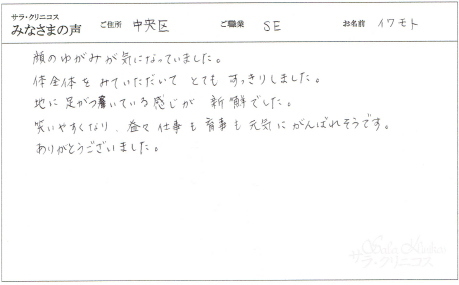 サラ・クリニコス
みなさまの声 ご住所 中央区 ご職業 SE お名前 イワモト
顔のゆがみが気になっていました。
体全体をみていただいて とても すっきりしました。
地に足がつ着いている感じが 新鮮でした。
笑いやすくなり、益々仕事も育事も元気にがんばれそうです。
ありがとうございました。
サラ・クリニコス